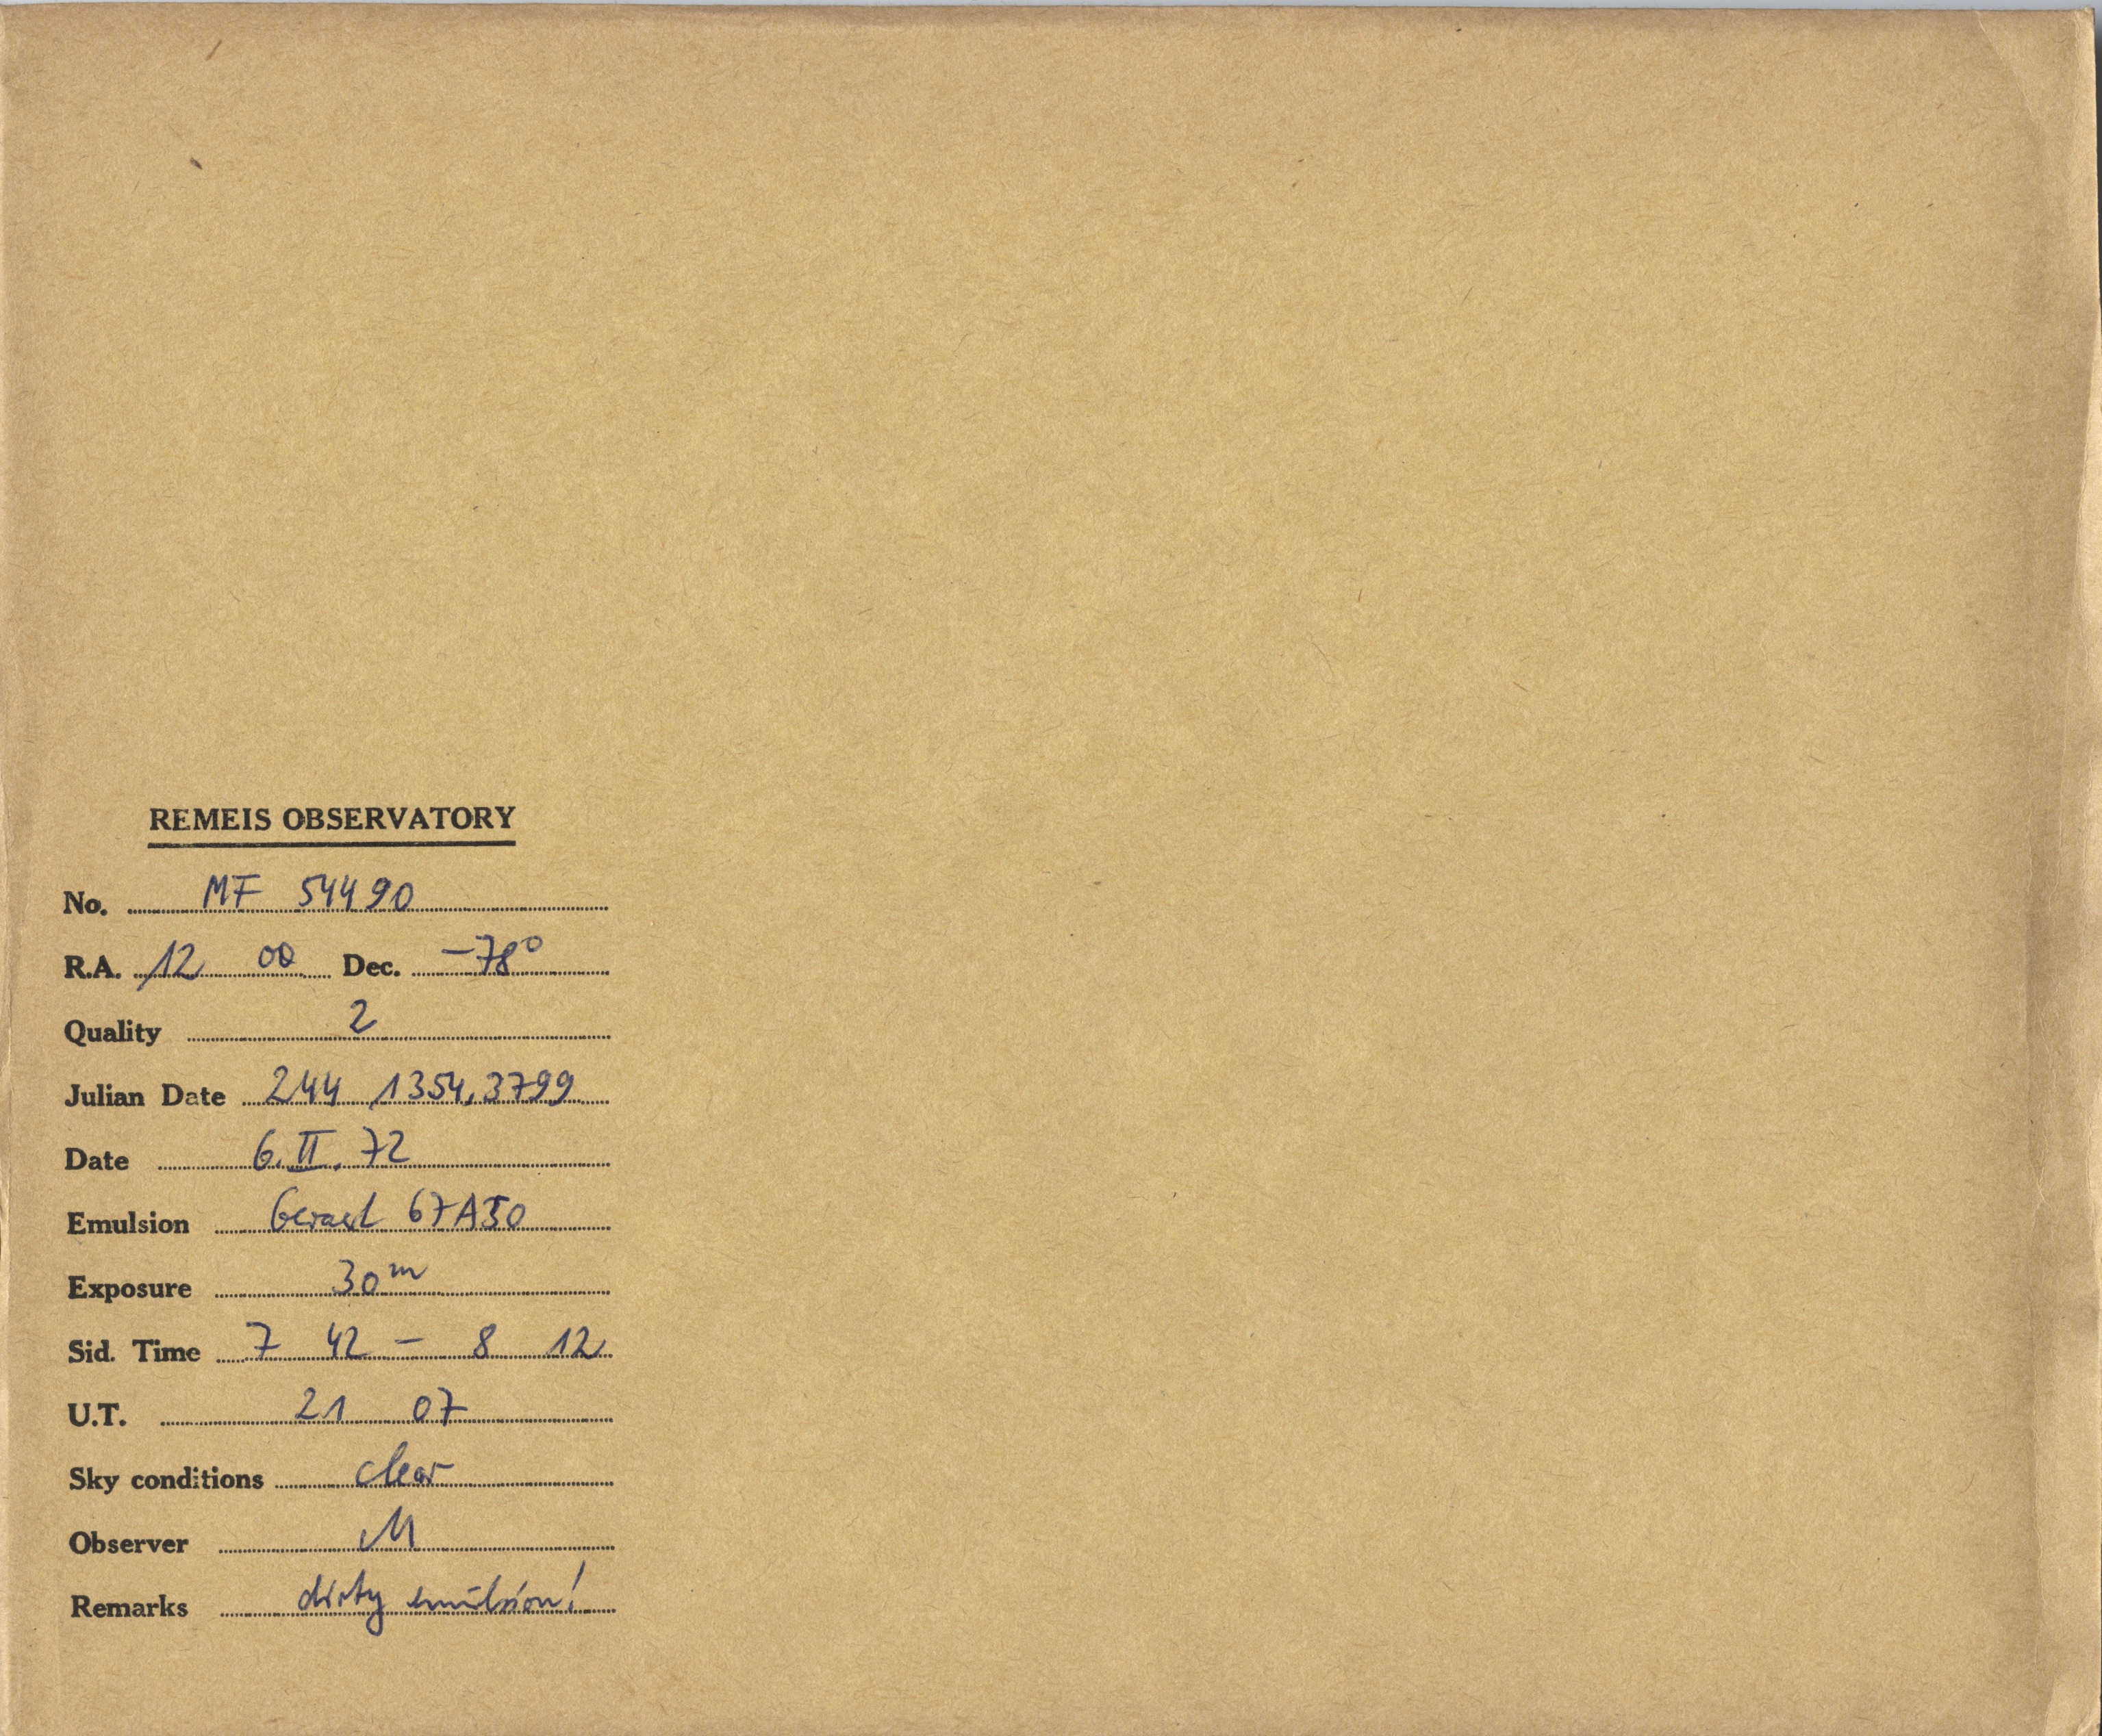 REMEIS OBSERVATORY
No. MF 54490
R.A. 12 00 Dec. -78°
Quality 2
Julian Date 244 1354,3799
Date 6. II. 72
Emulsion Gevaert 67A50
Exposure 30m
Sid. Time 7 42 – 8 12
U.T. 21 07
Sky conditions clear
Observer M
Remarks dirty emulsion!